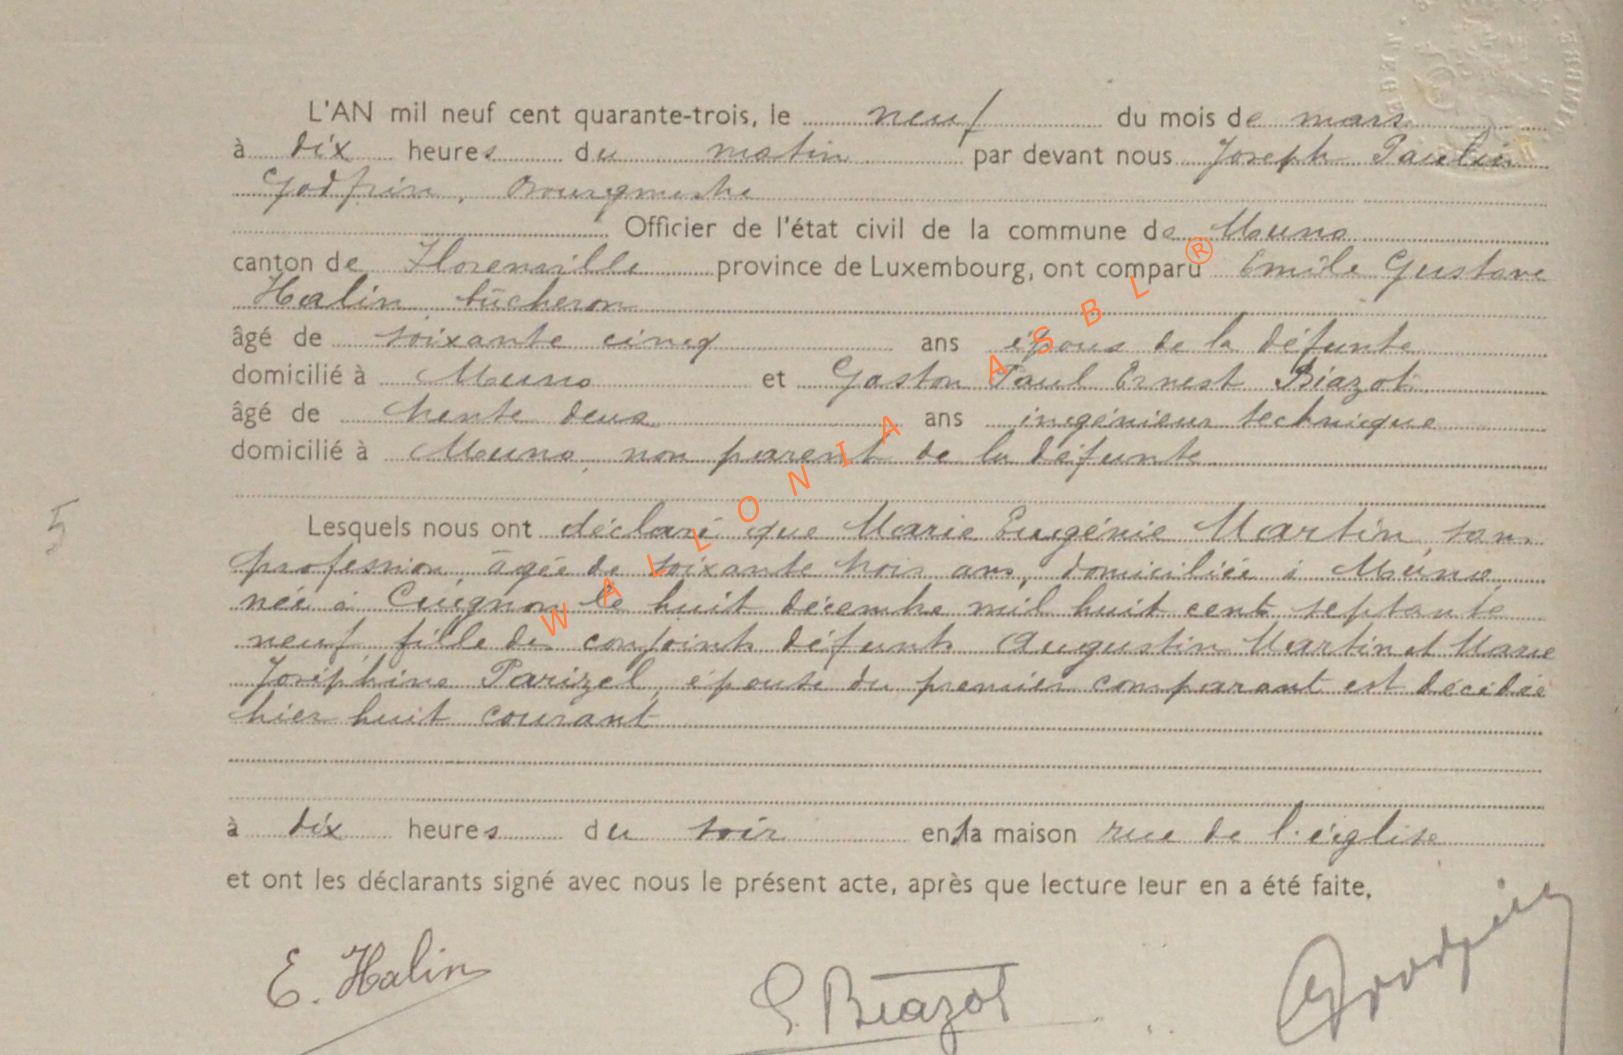 L'AN mil neuf cent quarante-trois, le neuf du mois de mars
à dix heures du matin par devant nous Joseph Paulin
Godfrin, Bourgmestre
Officier de l'état civil de la commune de Muno
canton de Florenville province de Luxembourg, ont comparu Emile Gustave
Halin bûcheron
âgé de soixante cinq ans époux de la défunte
domicilié à Muno et Gaston Paul Ernest Biazot
âgé de trente deux ans ingénieur technique
domicilié à Muno, non parent de la défunte
5
Lesquels nous ont déclaré que Marie Eugénie Martin, sans
profession, âgée de soixante trois ans, domiciliée à Muno
née à Cugnon le huit décembre mil huit cent septante
neuf, fille des conjoints défunts Augustin Martin et Marie
Joséphine Parizel, épouse du premier comparant est décédée
hier huit courant
à dix heures du soir en la maison rue de l'église
et ont les déclarants signé avec nous le présent acte, après que lecture leur en a été faite.
E. Halin
G. Biazot
Godfrin
WALLONIA ASBL®